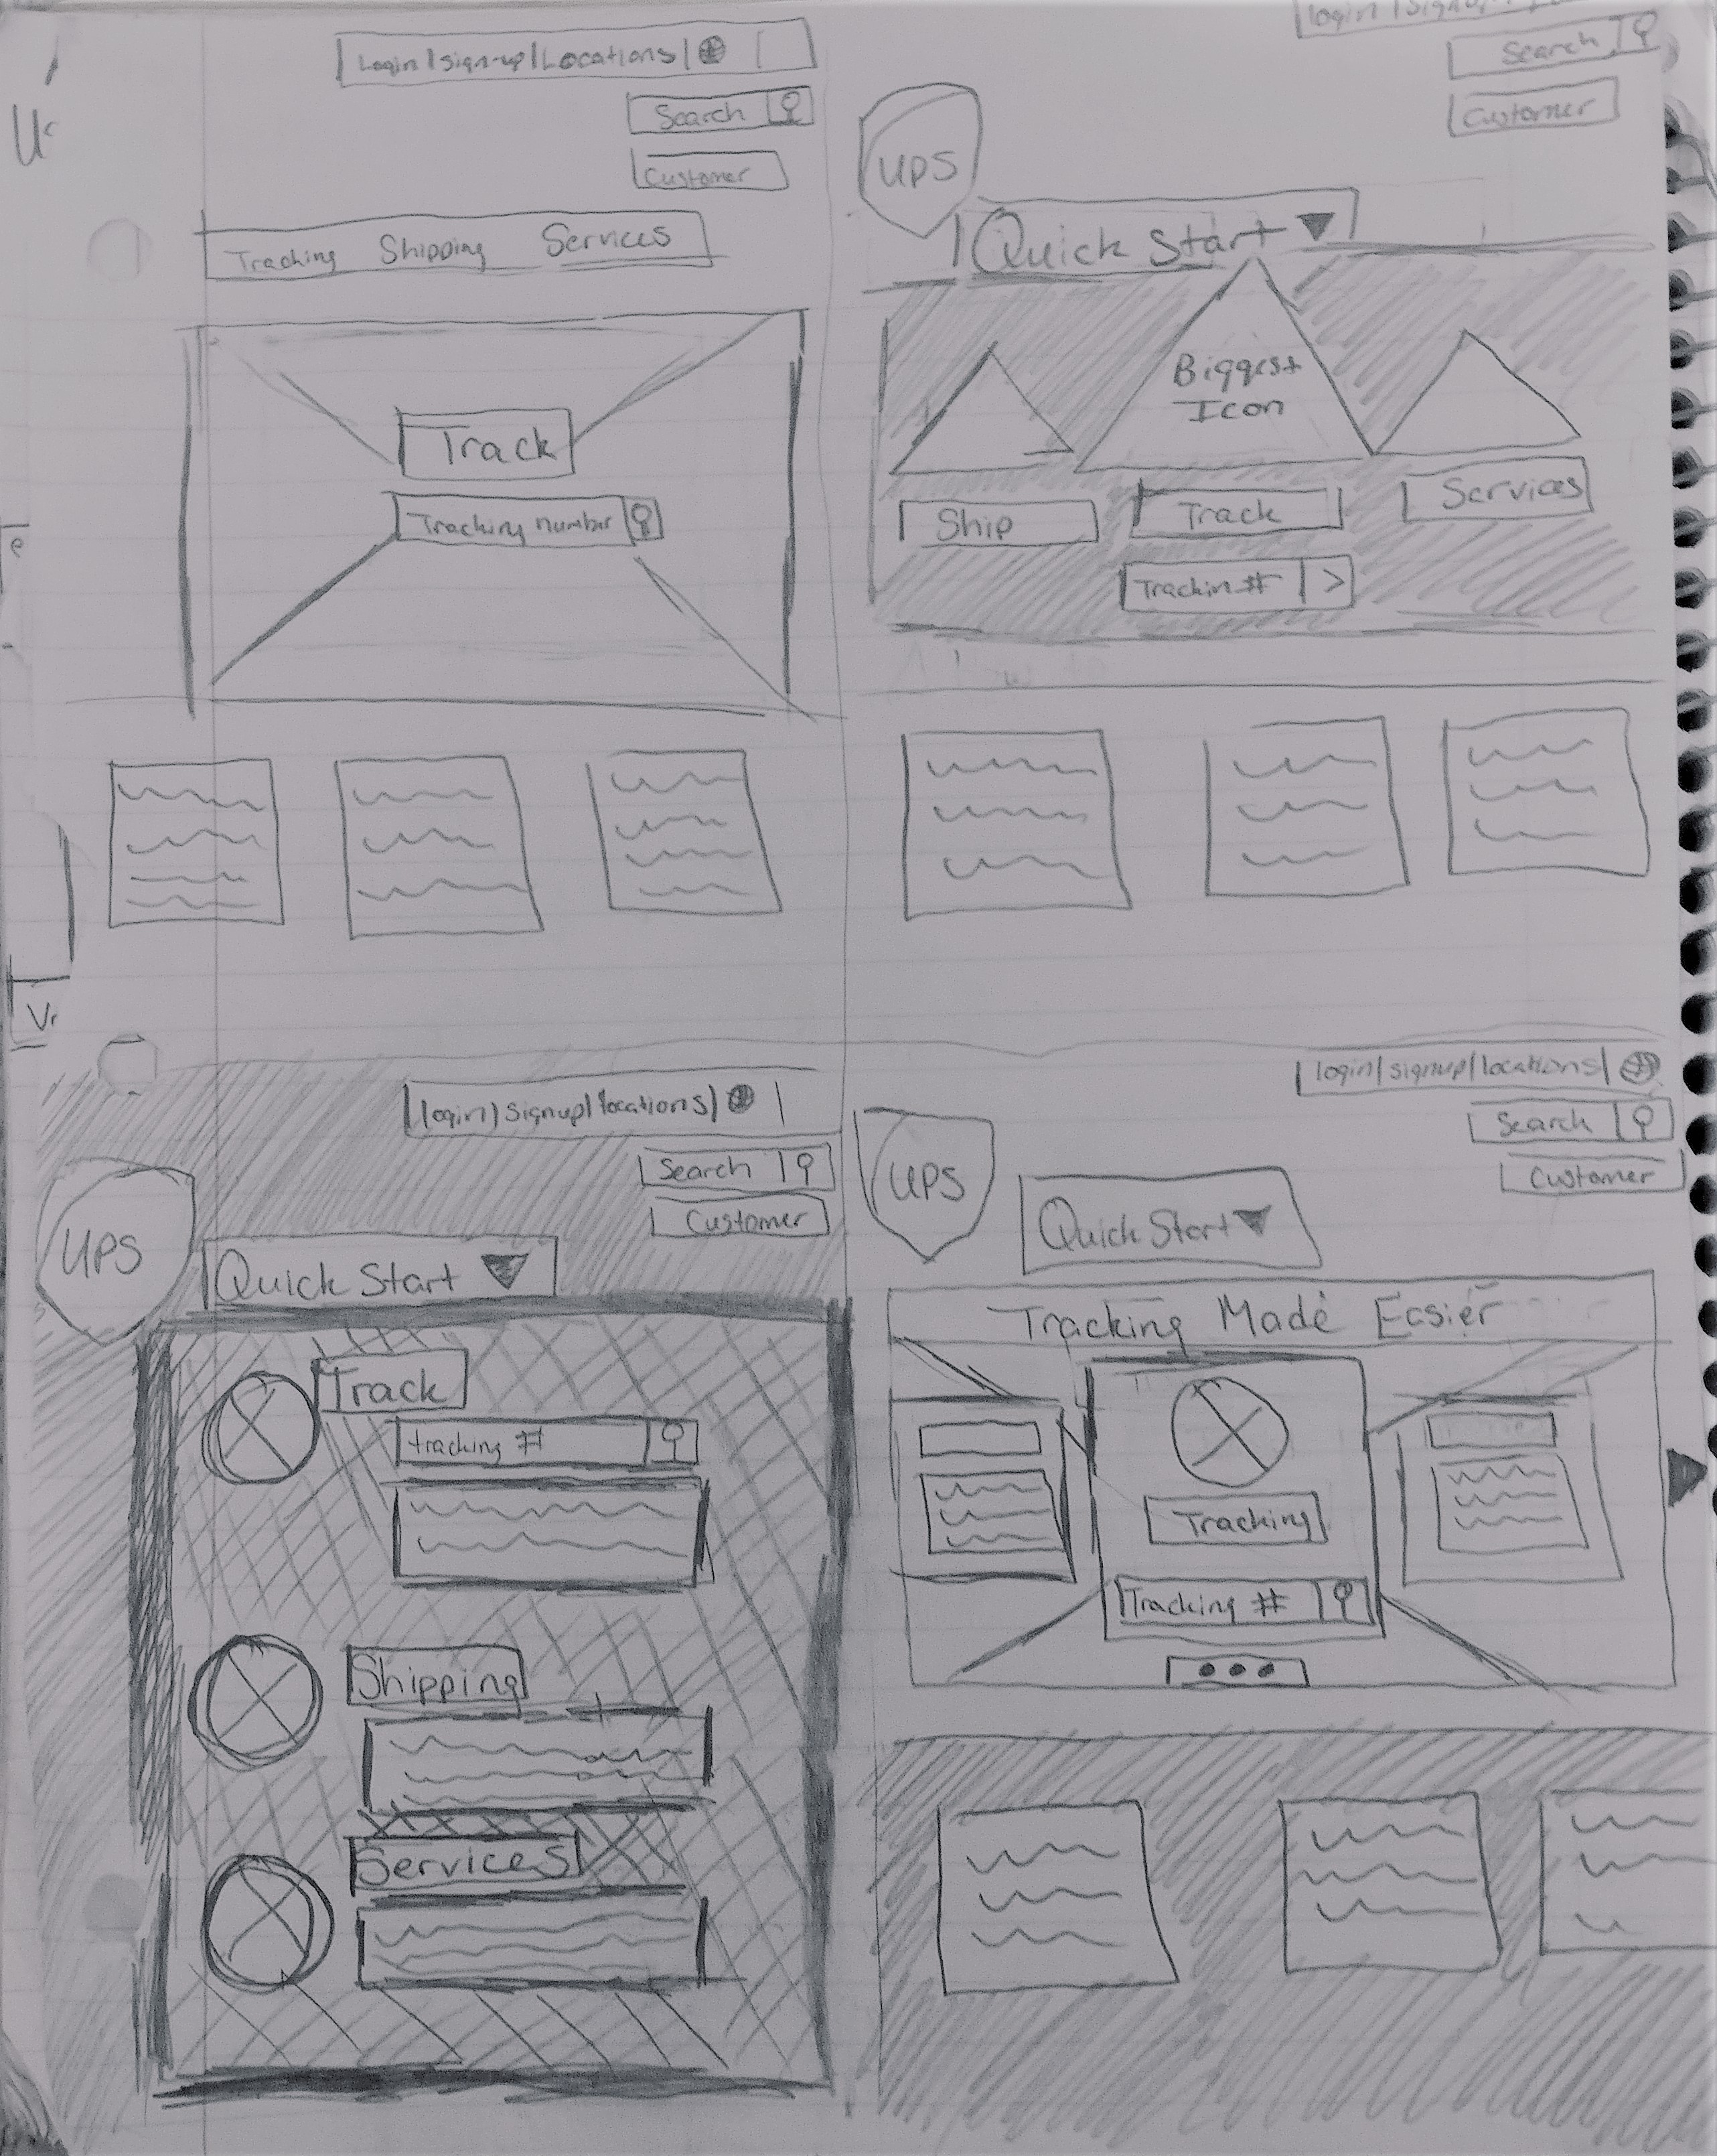 Login | sign-up | Locations |
Search
Customer
Tracking Shipping Services
Track
Tracking number
login | signup
Search
Customer
UPS
Quick Start
Biggest
Icon
Ship
Track
Services
Trackin # >
login | signup | locations |
Search
Customer
UPS
Quick Start
Track
tracking #
Shipping
Services
login | signup | locations |
Search
Customer
UPS
Quick Start
Tracking Made Easier
Tracking
Tracking #